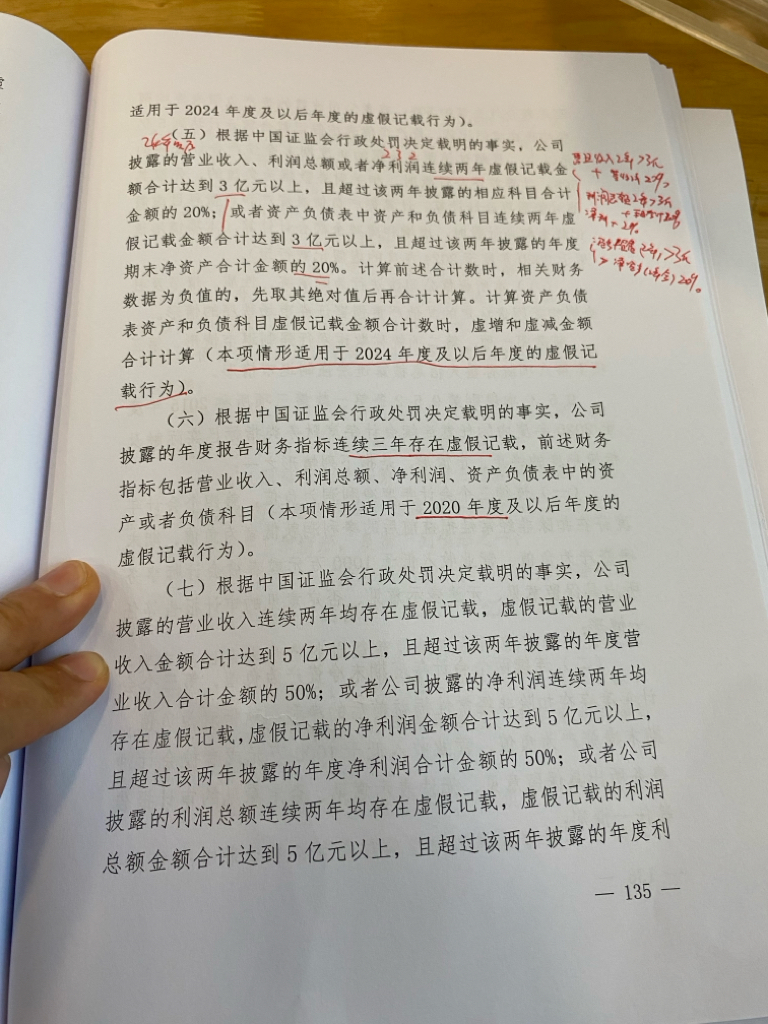 适用于 2024 年度及以后年度的虚假记载行为)。
(五)根据中国证监会行政处罚决定载明的事实,公司
2 3 2
披露的营业收入、利润总额或者净利润连续两年虚假记载金
额合计达到 3 亿元以上,且超过该两年披露的相应科目合计
金额的 20%;或者资产负债表中资产和负债科目连续两年虚
假记载金额合计达到 3 亿元以上,且超过该两年披露的年度
期末净资产合计金额的 20%。计算前述合计数时,相关财务
数据为负值的,先取其绝对值后再合计计算。计算资产负债
表资产和负债科目虚假记载金额合计数时,虚增和虚减金额
合计计算(本项情形适用于 2024 年度及以后年度的虚假记
载行为)。
(六)根据中国证监会行政处罚决定载明的事实,公司
披露的年度报告财务指标连续三年存在虚假记载,前述财务
指标包括营业收入、利润总额、净利润、资产负债表中的资
产或者负债科目(本项情形适用于 2020 年度及以后年度的
虚假记载行为)。
(七)根据中国证监会行政处罚决定载明的事实,公司
披露的营业收入连续两年均存在虚假记载,虚假记载的营业
收入金额合计达到 5 亿元以上,且超过该两年披露的年度营
业收入合计金额的 50%;或者公司披露的净利润连续两年均
存在虚假记载,虚假记载的净利润金额合计达到 5 亿元以上,
且超过该两年披露的年度净利润合计金额的 50%;或者公司
披露的利润总额连续两年均存在虚假记载,虚假记载的利润
总额金额合计达到 5 亿元以上,且超过该两年披露的年度利
— 135 —